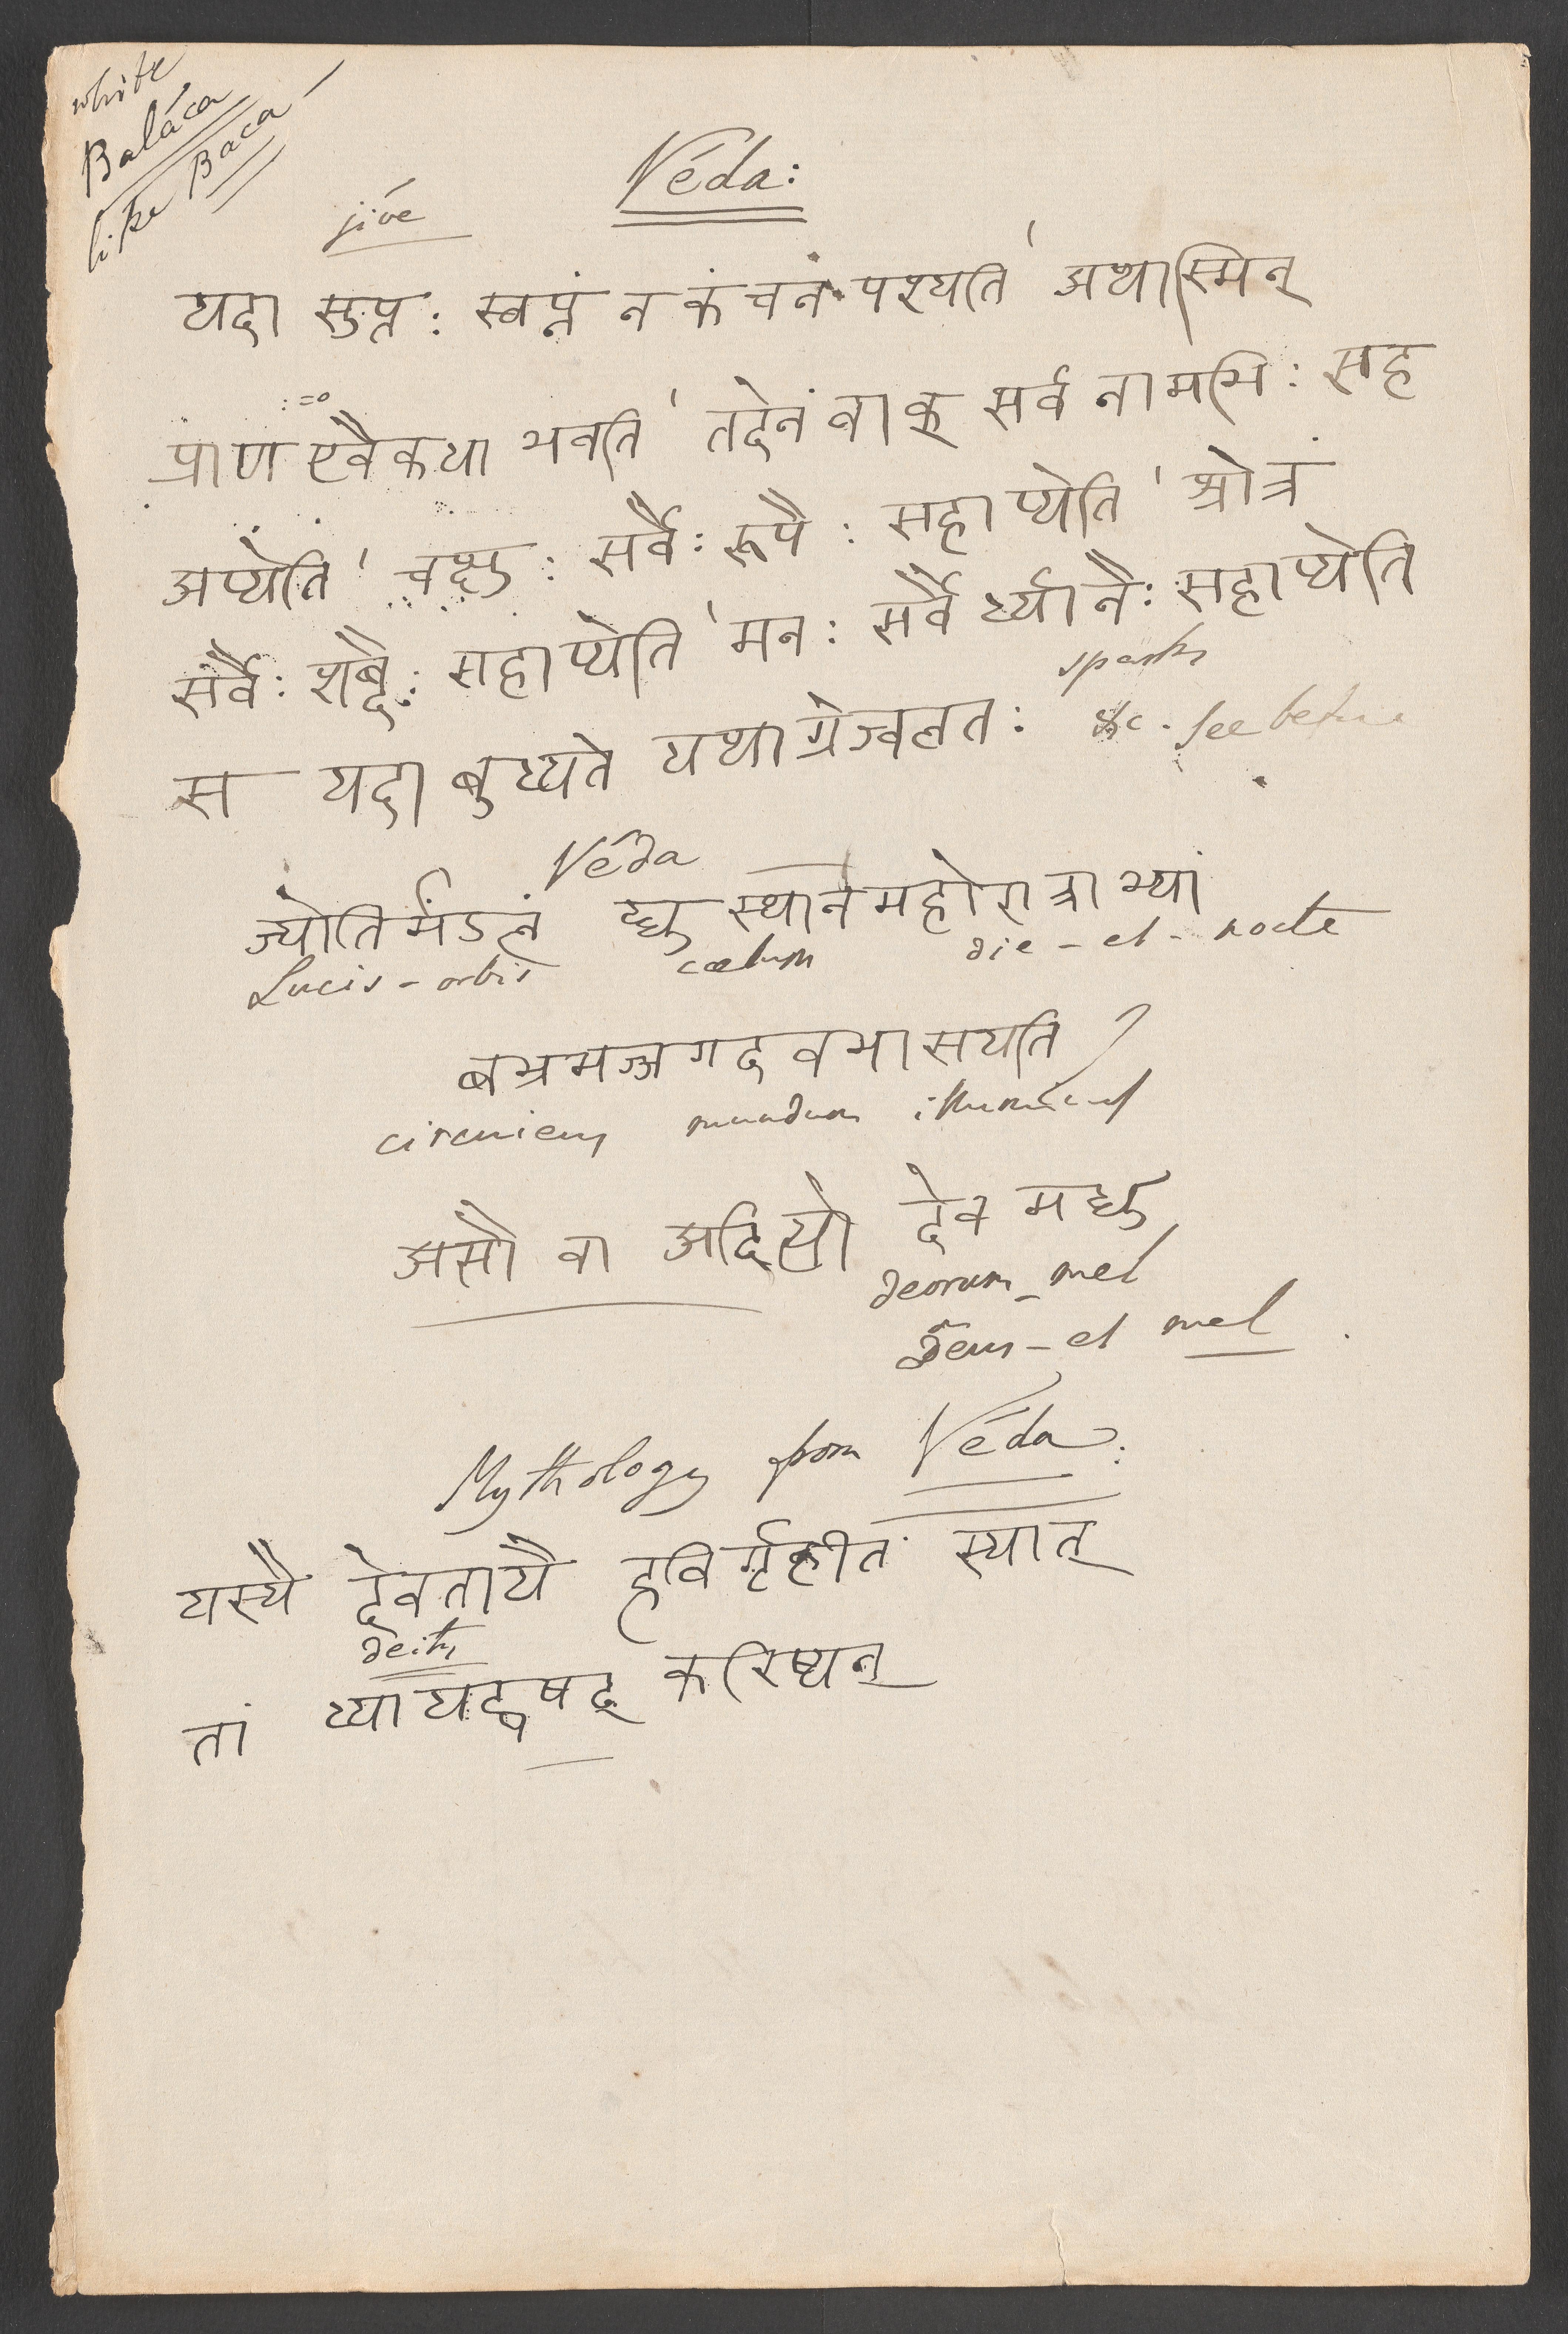 white
Baláca
like Baca
Véda:
jíve
यदा सुप्त: स्वप्नं न कंचनं पश्यति ' अथास्मिन्
प्राण एवैकधा भवति ' तदेनं वाक् सर्व नामभि: सह
अप्येति ' चक्षु: सर्वै: रूपै: सहाप्येति ' श्रोत्रं
सर्वै: शब्दै: सहाप्येति ' मन: सर्वै र्ध्यानै: सहाप्येति
स यदा बुध्यते यथाग्नेज्वलत: &c. See before
sparks
Véda
ज्योतिर्मंडलं द्युस्थानमहोरात्राभ्यां
Lucis-orbis cœlum die-et-nocte
बभ्रमज्जगदवभासयति
circuiens mundum
असौ वा अदित्यो देव मधु
deorum-mel
Deus-et mel
Mythology from Véda:
यस्यै देवतायै हविर्गृहीतं स्यात्
deity
तां ध्यायद्वषट् करिष्यन्